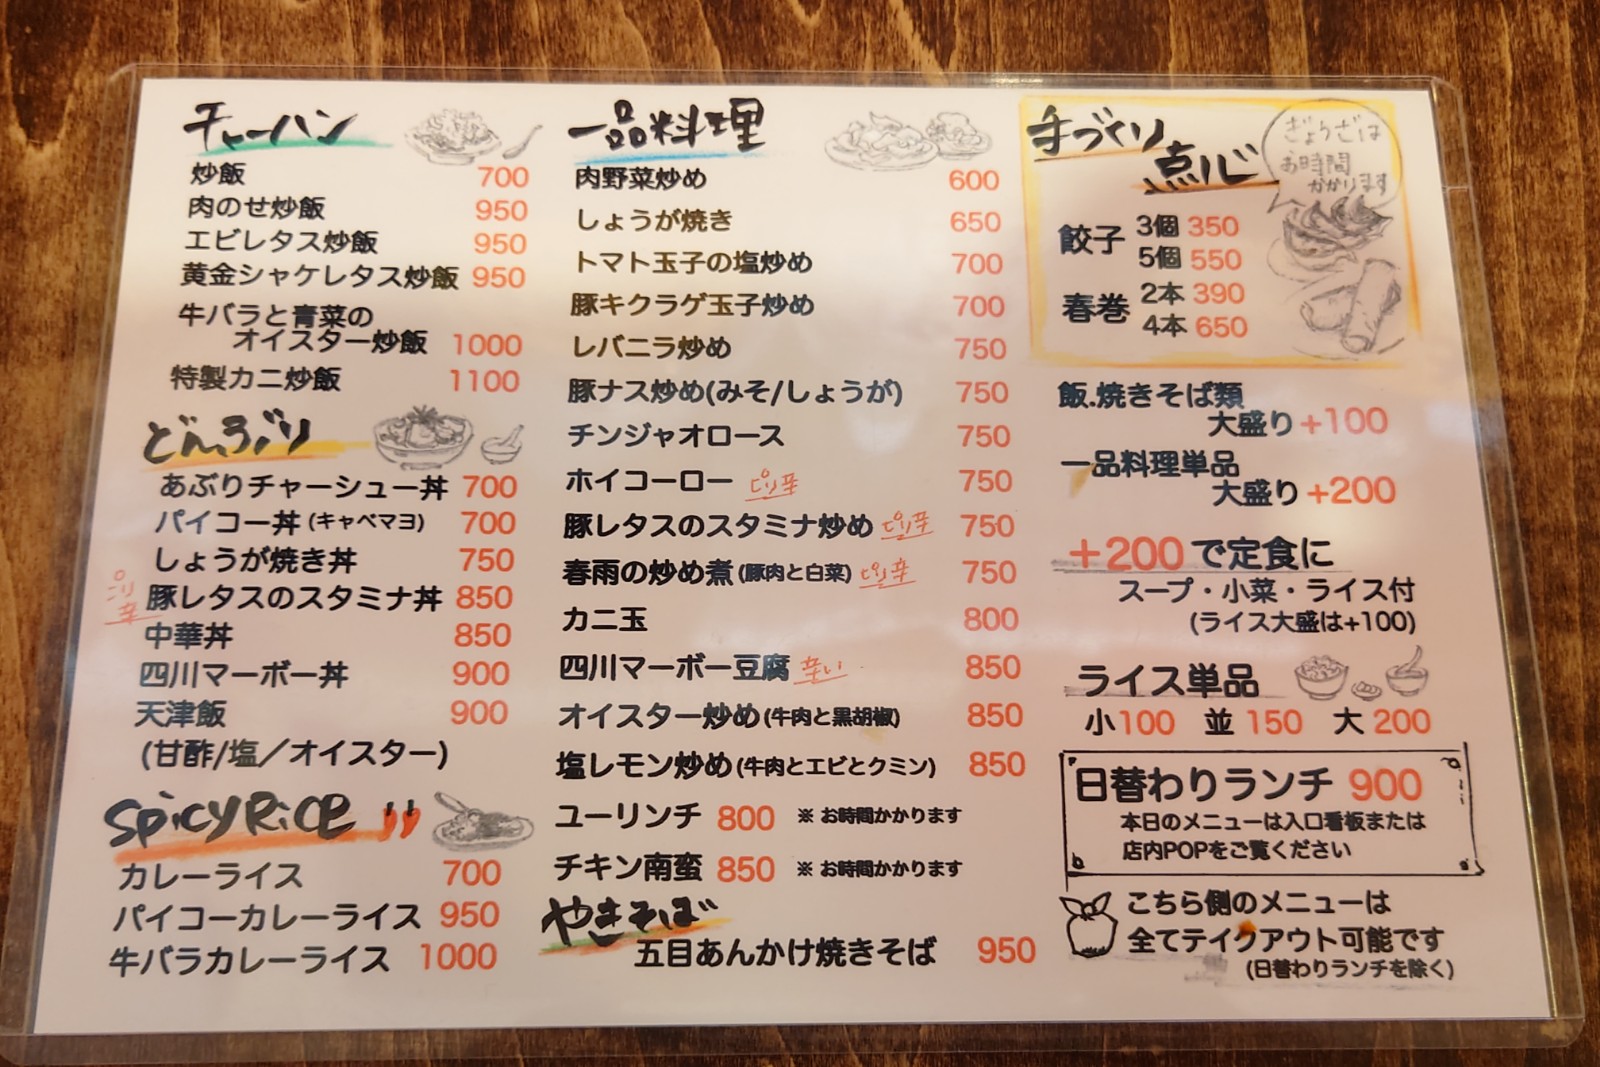 チャーハン
炒飯 700
肉のせ炒飯 950
エビレタス炒飯 950
黄金シャケレタス炒飯 950
牛バラと青菜の
オイスター炒飯 1000
特製カニ炒飯 1100
どんぶり
あぶりチャーシュー丼 700
パイコー丼(キャベマヨ) 700
しょうが焼き丼 750
ピリ辛 豚レタスのスタミナ丼 850
中華丼 850
四川マーボー丼 900
天津飯 900
(甘酢/塩/オイスター)
Spicy Rice
カレーライス 700
パイコーカレーライス 950
牛バラカレーライス 1000
一品料理
肉野菜炒め 600
しょうが焼き 650
トマト玉子の塩炒め 700
豚キクラゲ玉子炒め 700
レバニラ炒め 750
豚ナス炒め(みそ/しょうが) 750
チンジャオロース 750
ホイコーロー ピリ辛 750
豚レタスのスタミナ炒め ピリ辛 750
春雨の炒め煮(豚肉と白菜) ピリ辛 750
カニ玉 800
四川マーボー豆腐 辛い 850
オイスター炒め(牛肉と黒胡椒) 850
塩レモン炒め(牛肉とエビとクミン) 850
ユーリンチ 800 ※お時間かかります
チキン南蛮 850 ※お時間かかります
やきそば
五目あんかけ焼きそば 950
手づくり
点心
ぎょうざは
お時間
かかります
餃子 3個 350
5個 550
春巻 2本 390
4本 650
飯.焼きそば類
大盛り+100
一品料理単品
大盛り+200
+200で定食に
スープ・小菜・ライス付
(ライス大盛は+100)
ライス単品
小100 並150 大200
日替わりランチ 900
本日のメニューは入口看板または
店内POPをご覧ください
こちら側のメニューは
全てテイクアウト可能です
(日替わりランチを除く)